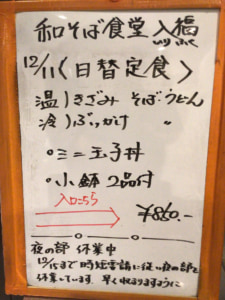 和そば食堂 入福
いり ふく
12/11〈日替定食〉
温)きざみ そば うどん
冷)ぶっかけ 〃
・ミニ玉子丼
・小鉢 2品付
入口こちら
¥860.-
夜の部 休業中
12/15まで時短要請に従い夜の部を
休業しています 早く収まりますように